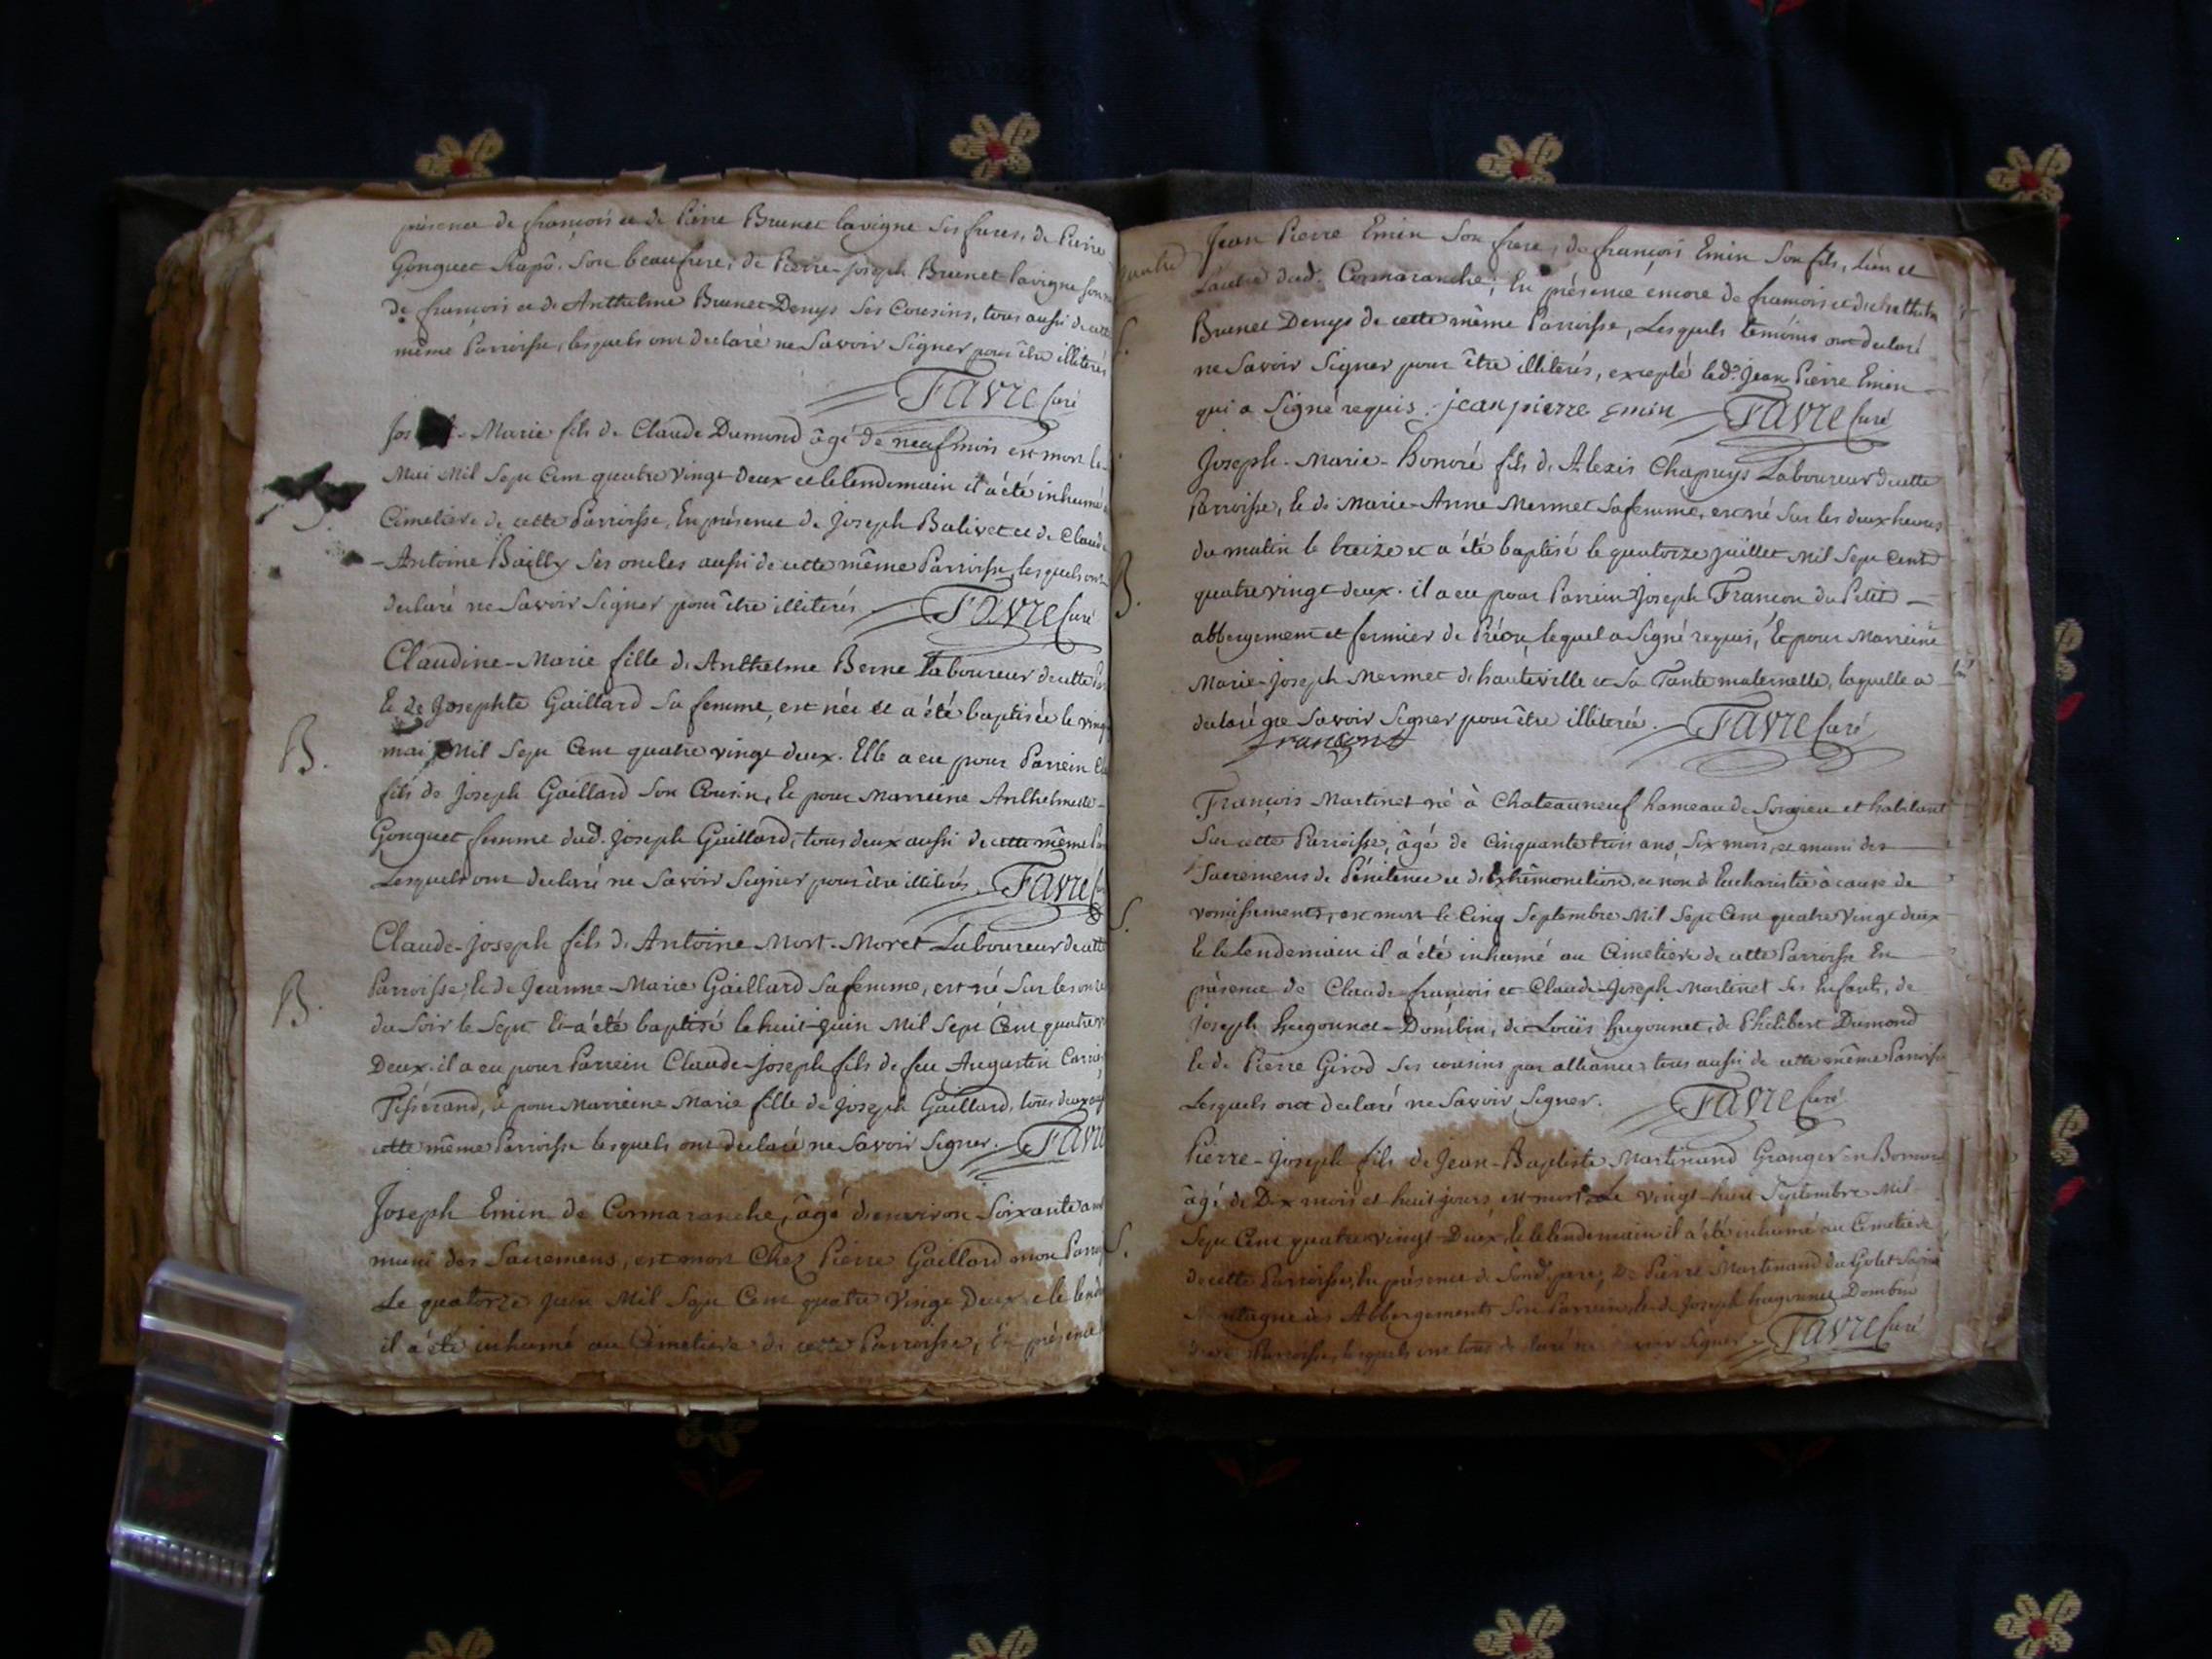 présence de françois et de Pierre Brunet lavigne Ses freres, de Pierre
Gonguet Rapô. Son beaufrere, de Pierre-Joseph Brunet-lavigne son
de françois et de Anthelme Brunet-Denys Ses Cousins, tous aussi de cette
même Parroisse, lesquels ont declaré ne Savoir Signer pour être illiterés
Favre Curé
Marie fils de Claude Dumond âgé de neuf mois est mort le
Mai Mil Sept Cent quatre vingt-deux et le lendemain il a été inhumé
Cimetiere de cette Parroisse, En présence de Joseph Balivet et de Claude
-Antoine Bailly Ses oncles aussi de cette même Parroisse, lesquels ont
declaré ne Savoir Signer pour être illiterés. Favre Curé
Claudine-Marie fille de Anthelme Berne Laboureur de cette
Et de Josephte Gaillard Sa femme, est née et a été baptisée le vingt
B.
mai Mil Sept Cent quatre vingt deux. Elle a eu pour Parrein
fils de Joseph Gaillard Son Cousin, Et pour Marreine Anthelmette
Gonguet femme dud. Joseph Gaillard, tous deux aussi de cette même
Lesquels ont declaré ne Savoir Signer pour être illiterés. Favre
Claude-Joseph fils de Antoine Mort-Moret Laboureur de cette
Parroisse, Et de Jeanne-Marie Gaillard Sa femme, est né Sur les onze
B.
du Soir le Sept Et a été baptisé le huit juin Mil Sept Cent quatre
Deux. il a eu pour Parrein Claude-Joseph fils de feu Augustin
Tisserand, et pour Marreine Marie fille de Joseph Gaillard, tous deux
cette même Parroisse lesquels ont declaré ne Savoir Signer. Favre
Joseph Emin de Cormaranche, âgé d'environ Soixante ans
muni des Sacremens, est mort Chez Pierre Gaillard mon
Le quatorze juin Mil Sept Cent quatre Vingt Deux et le
il a été inhumé au Cimetiere de cette Parroisse, En présence
Jean Pierre Emin Son frere, de françois Emin Son fils, L'un et
L'autre dud. Cormaranche; En présence encore de françois et de
Brunet Denys de cette même Parroisse, Lesquels temoins ont declaré
S.
ne Savoir Signer pour être illiterés, excepté led. Jean Pierre Emin
qui a Signé requis. jean pierre Emin Favre Curé
Joseph-Marie-Honoré fils de Alexis Chapuys Laboureur de cette
Parroisse, Et de Marie-Anne Mermet Sa femme, est né Sur les deux heures
du matin le treize et a été baptisé le quatorze juillet Mil Sept Cent
B.
quatre vingt deux. il a eu pour Parrein Joseph Françon du Petit
abbergement et fermier de Préon, lequel a Signé requis, Et pour Marreine
Marie-Joseph Mermet de hauteville et Sa Tante maternelle, laquelle a
declaré ne Savoir Signer pour être illiterée. Favre Curé
françont
François Martinet né à Chateauneuf hameau de Songieu et habitant
Sur cette Parroisse, âgé de Cinquante trois ans, Six mois, et muni des
Sacremens de Pénitence et de et non d'Eucharistie à cause de
S.
vomissements, est mort le Cinq Septembre Mil Sept Cent quatre Vingt deux
Et le lendemain il a été inhumé au Cimetiere de cette Parroisse En
présence de Claude-françois et Claude-Joseph Martinet Ses Enfants, de
Joseph Hugonnet-Dombin, de Louïs Hugonnet, de Philibert Dumond
Et de Pierre Girod Ses cousins par alliance, tous aussi de cette même Parroisse
Lesquels ont declaré ne Savoir Signer. Favre Curé
Pierre-Joseph fils de Jean-Baptiste Martinand Granger en
âgé de Dix mois et huit jours, est mort Le vingt-huit Septembre Mil
S.
Sept Cent quatre vingt-Deux, Et le lendemain il a été inhumé au Cimetiere
de cette Parroisse, En présence de Sond. pere, De Pierre Martinand du Golet
des Abbergements Son Parrein, Et de Joseph hugonnet Dombin
Parroisse, lesquels ont tous declaré ne Signer. Favre Curé